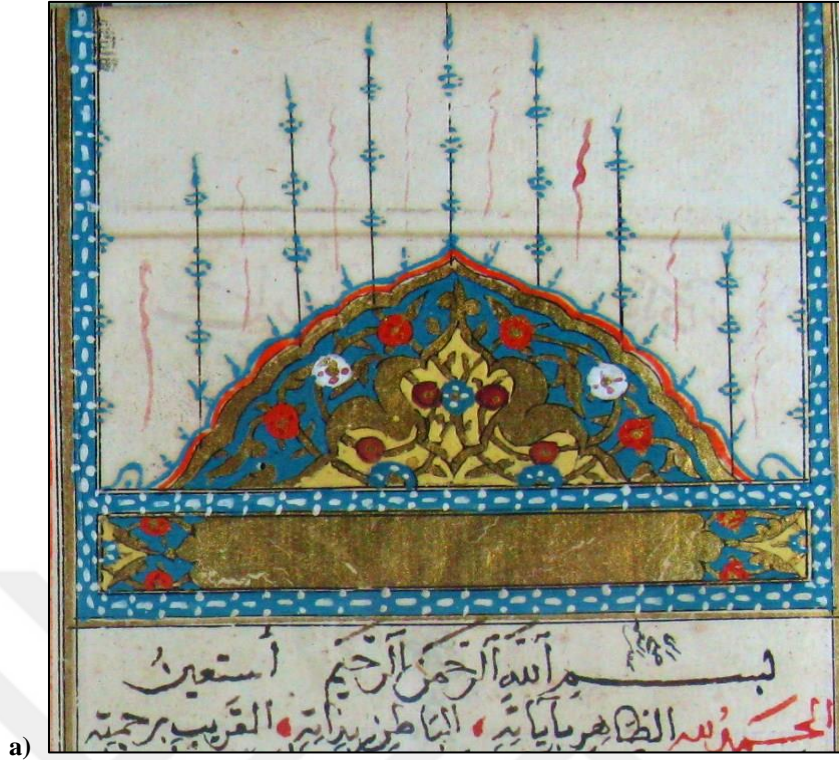 بسم اللَّه الرَّحمَن الرَّحيم أستعينُ
الحمد لله الظَاهر بآياتِه، البَاطِن بذاتِه، القَريب برحمتِه
a)